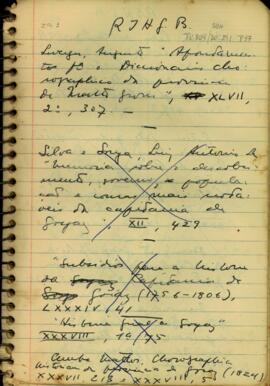 R I H G B.
Augusto "Apontamen
tos pª o Diccionario cho
rographico da provincia
de Matto Grosso", XLVII,
2ª, 307. —
Silva e Souza, Luiz Antonio da
"Memoria sobre o descobri
mento, governo, popula
ção e cousas mais nota
veis da capitania de
Goyaz XII, 429
"Subsidios para a historia
da Capitania de
Goyaz (1756-1806),
LXXXIV, 41
Goyaz"
XXXVIII, 1ª, 75
Cunha Mattos, Chorographia
historica da provincia de Goyaz (1824)
XXXVII, 213 e XXXVIII, 5